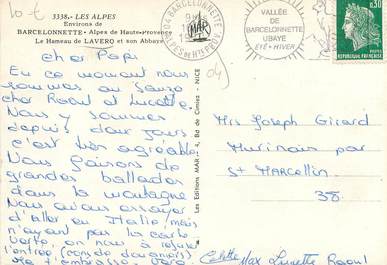 10 €
3338.- LES ALPES
Environs de
BARCELONNETTE - Alpes de Haute-Provence
Le Hameau de LAVERQ et son Abbaye
Cher Papi
En ce moment nous
sommes au Sauze
chez Raoul et Lucette.
Nous y sommes
depuis deux jours
c'est très agréable.
Nous faisons de
grandes ballades
dans la montagne
Nous avions essayer
d'aller en Italie mais
n'ayant pas la carte
verte, on nous a refuser
l'entrée (con de douaniers)
Je t'embrasse.
Les Editions MAR - 4, Bd de Cimiez - NICE
MAR
04 BARCELONNETTE
ALPES DE HTE PROV.
VALLÉE
DE
BARCELONNETTE
UBAYE
ÉTÉ - HIVER
0,30
REPUBLIQUE FRANCAISE
04
Mrs Joseph Girard
Murinais par
St Marcellin
38.
Colette Max Lucette Raoul